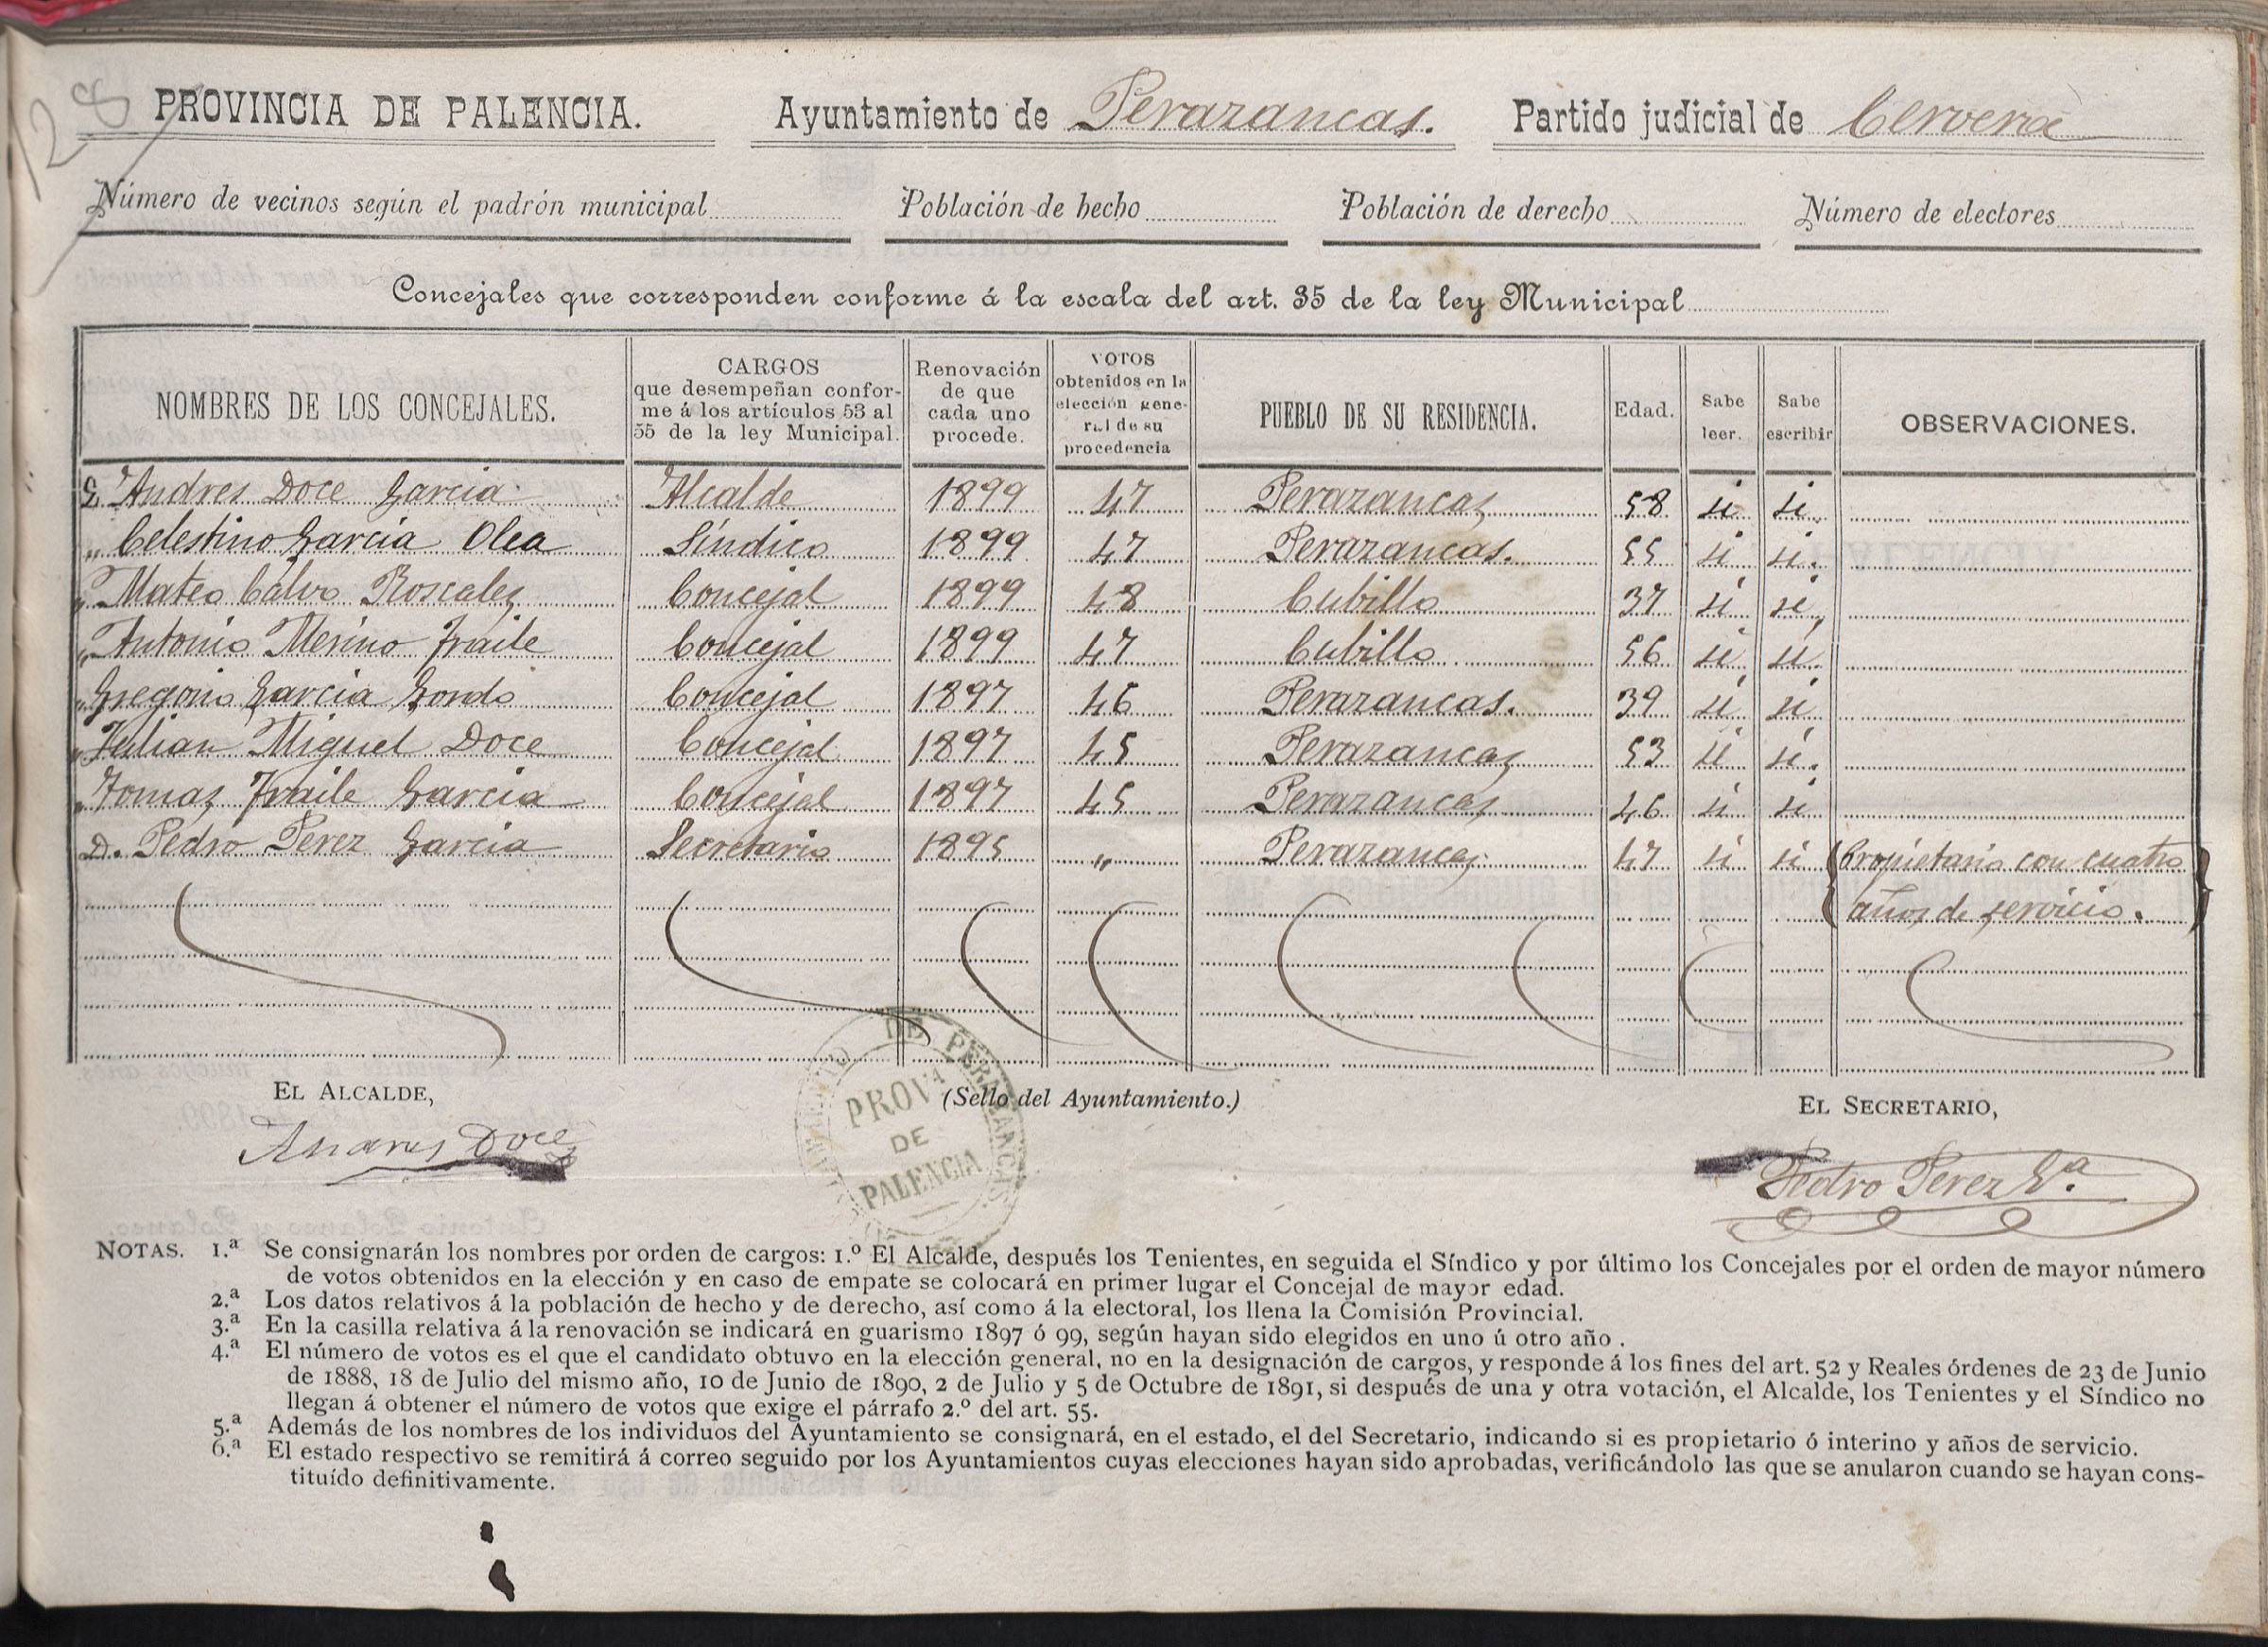 128
PROVINCIA DE PALENCIA. Ayuntamiento de Perazancas. Partido judicial de Cervera
Número de vecinos según el padrón municipal Población de hecho Población de derecho Número de electores
Concejales que corresponden conforme á la escala del art. 35 de la ley Municipal
NOMBRES DE LOS CONCEJALES. CARGOS que desempeñan confor-me á los artículos 53 al 55 de la ley Municipal. Renovación de que cada uno procede. VOTOS obtenidos en la elección gene-ral de su procedencia PUEBLO DE SU RESIDENCIA. Edad. Sabe leer. Sabe escribir OBSERVACIONES.
D. Andres Doce Garcia Alcalde 1899 47 Perazancas 58 si si
" Celestino Garcia Olea Síndico 1899 47 Perazancas. 55 si si.
" Mateo Calvo Roscales Concejal 1899 48 Cubillo 37 si si
" Antonio Merino Fraile Concejal 1899 47 Cubillo 56 si si.
" Gregorio Garcia Gordo Concejal 1897 46 Perazancas. 39 si si
" Julian Miguel Doce Concejal 1897 45 Perazancas 53 si si.
" Tomas Fraile Garcia Concejal 1897 45 Perazancas 46 si si
D. Pedro Perez Garcia Secretario 1895 " Perazancas 47 si si Propietario con cuatro
años de servicio.
EL ALCALDE, (Sello del Ayuntamiento.) EL SECRETARIO,
Andres Doce
Pedro Perez Gª.
DE PERAZANCAS
PROVª
DE
PALENCIA
NOTAS. 1.ª Se consignarán los nombres por orden de cargos: 1.º El Alcalde, después los Tenientes, en seguida el Síndico y por último los Concejales por el orden de mayor número
de votos obtenidos en la elección y en caso de empate se colocará en primer lugar el Concejal de mayor edad.
2.ª Los datos relativos á la población de hecho y de derecho, así como á la electoral, los llena la Comisión Provincial.
3.ª En la casilla relativa á la renovación se indicará en guarismo 1897 ó 99, según hayan sido elegidos en uno ú otro año.
4.ª El número de votos es el que el candidato obtuvo en la elección general, no en la designación de cargos, y responde á los fines del art. 52 y Reales órdenes de 23 de Junio
de 1888, 18 de Julio del mismo año, 10 de Junio de 1890, 2 de Julio y 5 de Octubre de 1891, si después de una y otra votación, el Alcalde, los Tenientes y el Síndico no
llegan á obtener el número de votos que exige el párrafo 2.º del art. 55.
5.ª Además de los nombres de los individuos del Ayuntamiento se consignará, en el estado, el del Secretario, indicando si es propietario ó interino y años de servicio.
6.ª El estado respectivo se remitirá á correo seguido por los Ayuntamientos cuyas elecciones hayan sido aprobadas, verificándolo las que se anularon cuando se hayan cons-
tituído definitivamente.